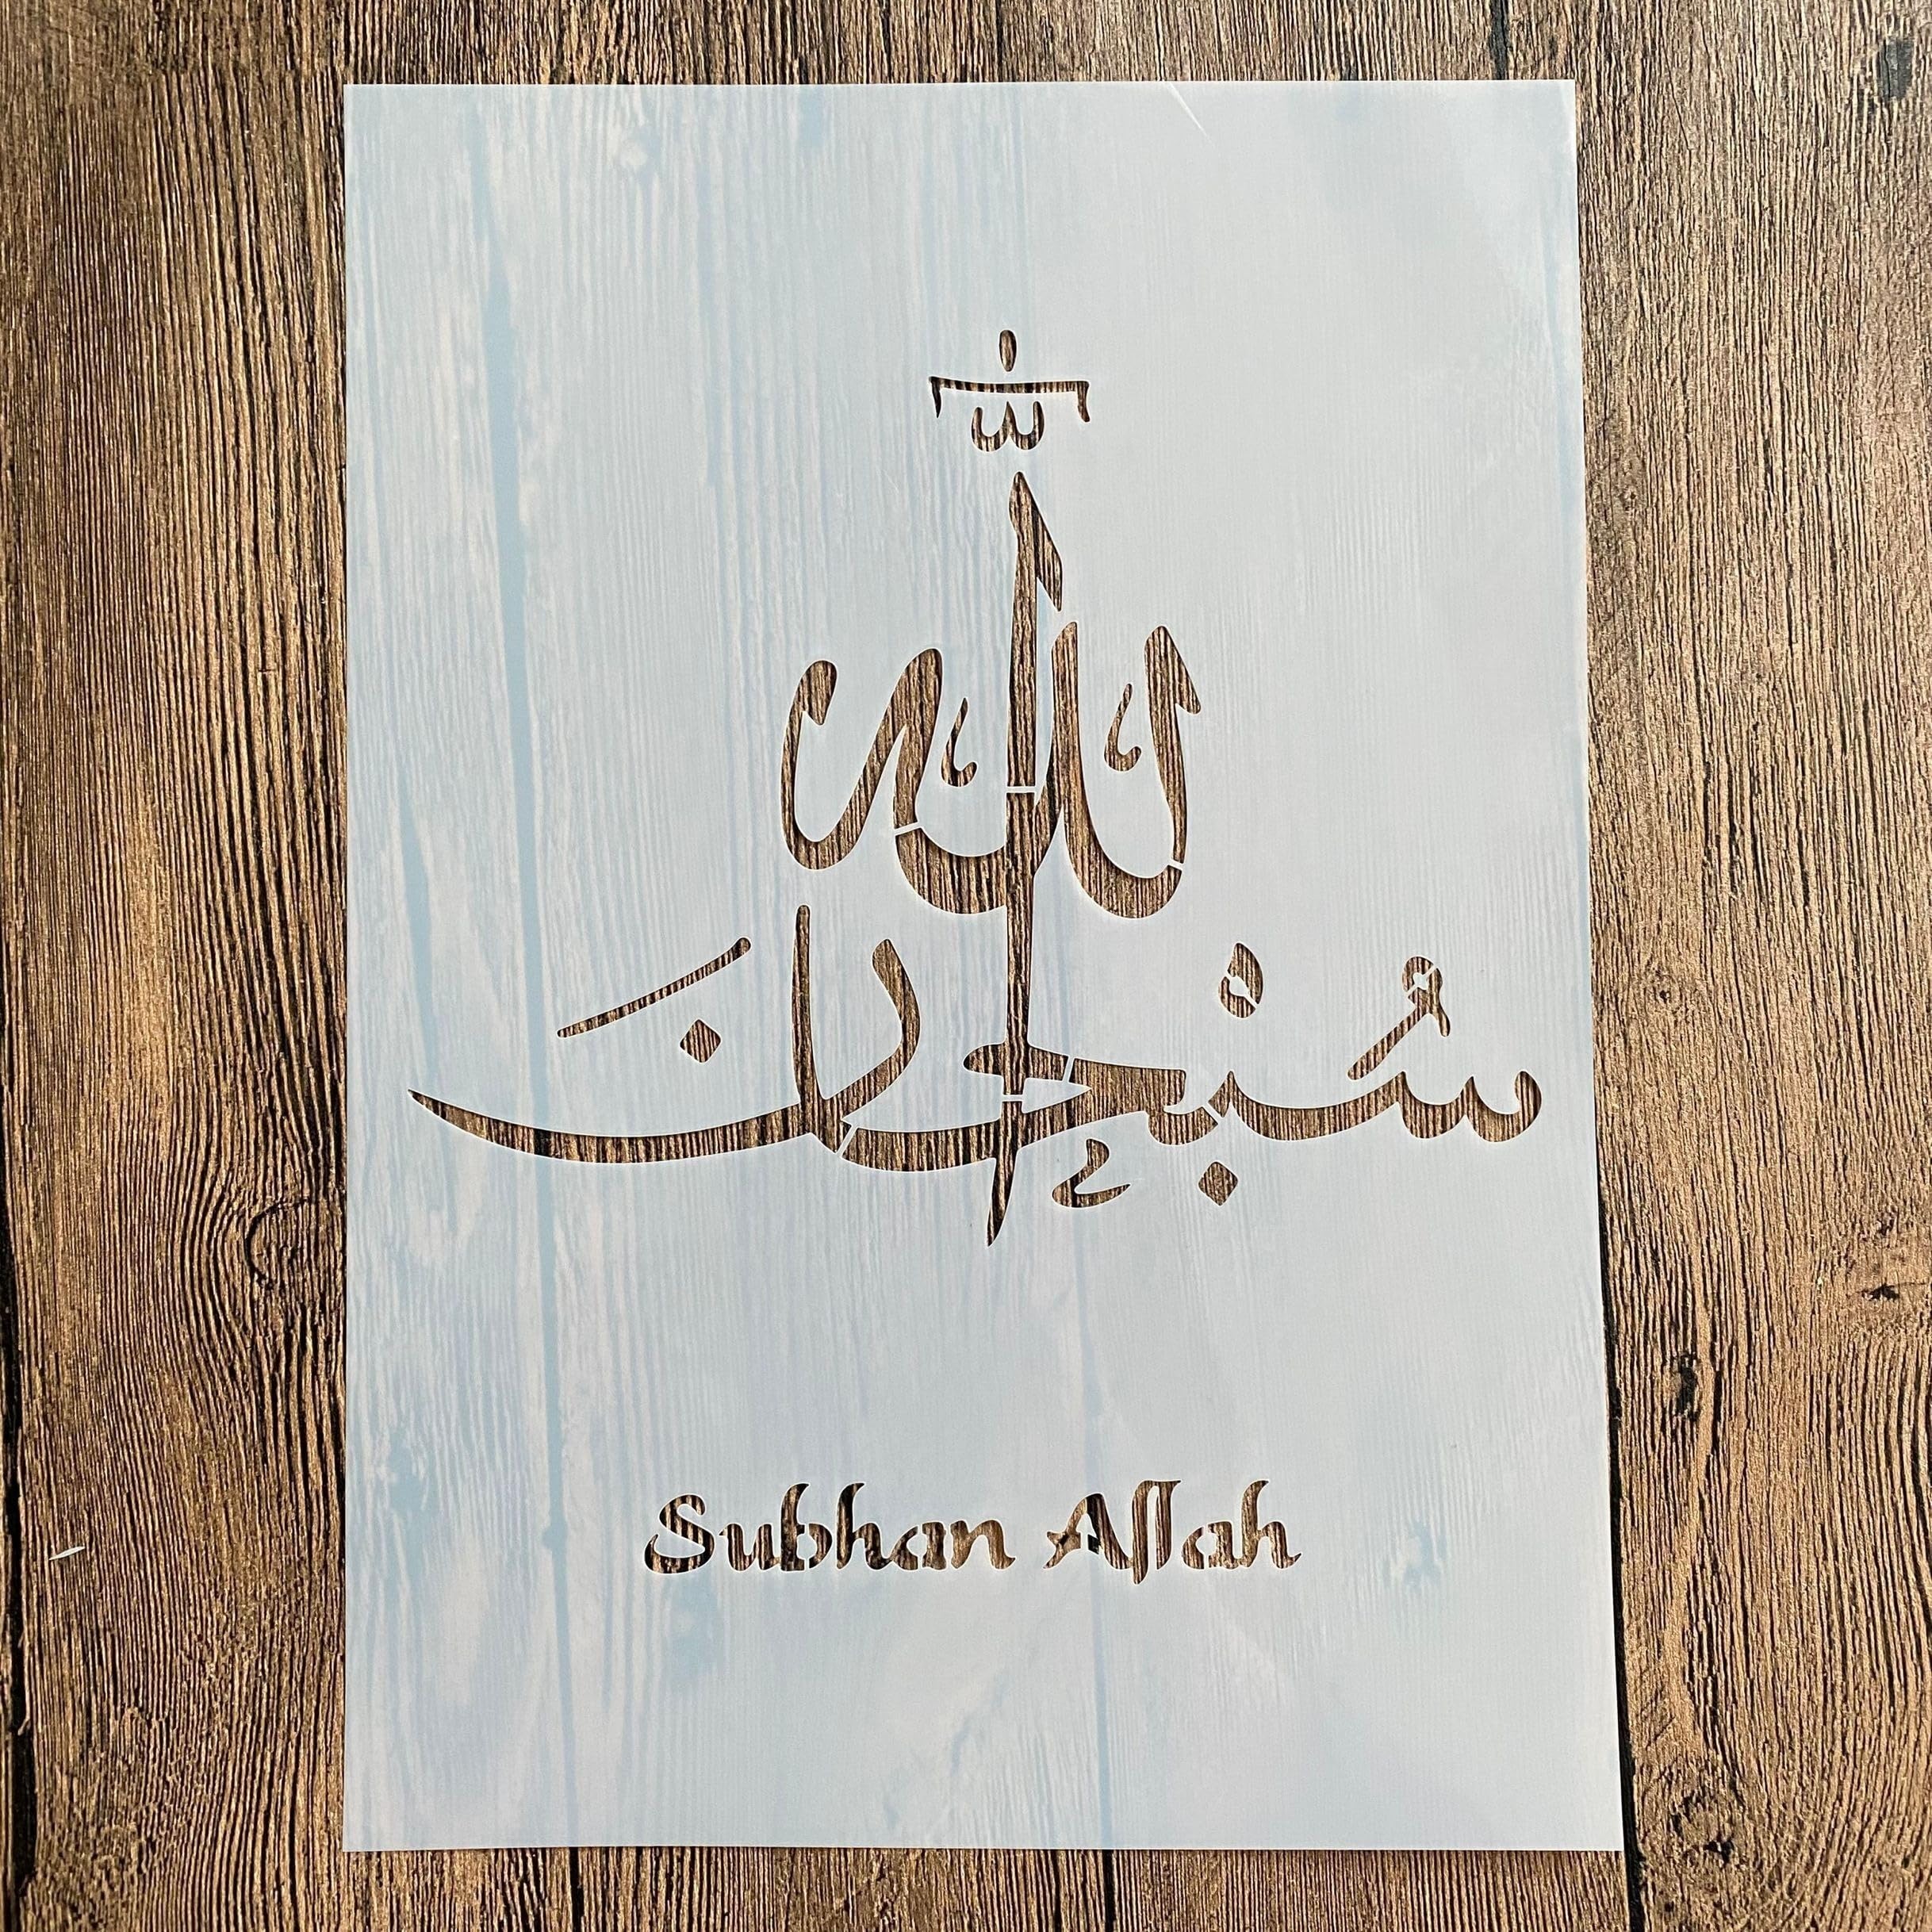 سُبْحٰنَ اللّٰه
Subhan Allah